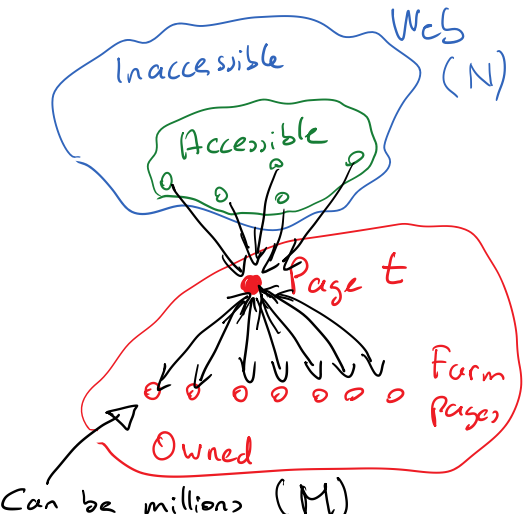 Web
(N)
Inaccessible
Accessible
Page t
Farm
pages
Owned
Can be millions (M)